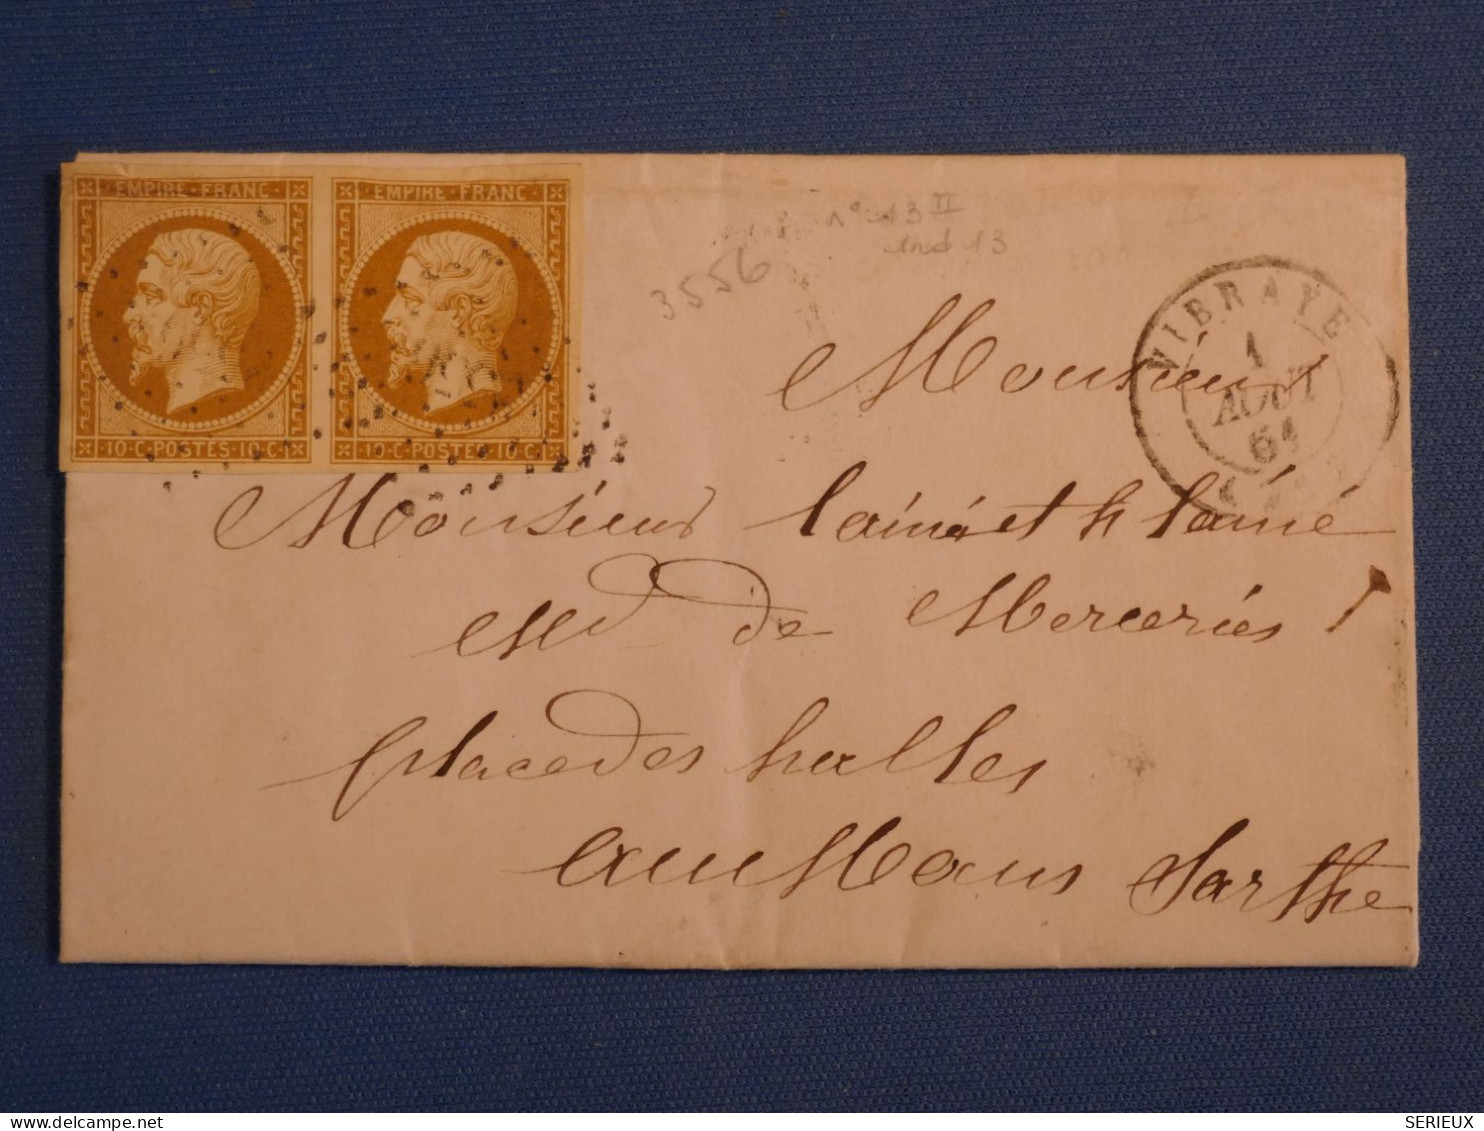 EMPIRE · FRANC · EMPIRE · FRANC ·
· 10 · C · POSTES · 10 · C · · 10 · C · POSTES · 10 · C ·
n° 13 II
ind 13
3556
VIBRAYE
1
AOUT
61
Monsieur
Monsieur lainé et h lainé
Md de Merceries
place des halles
au Mans Sarthe
delcampe.net
SERIEUX